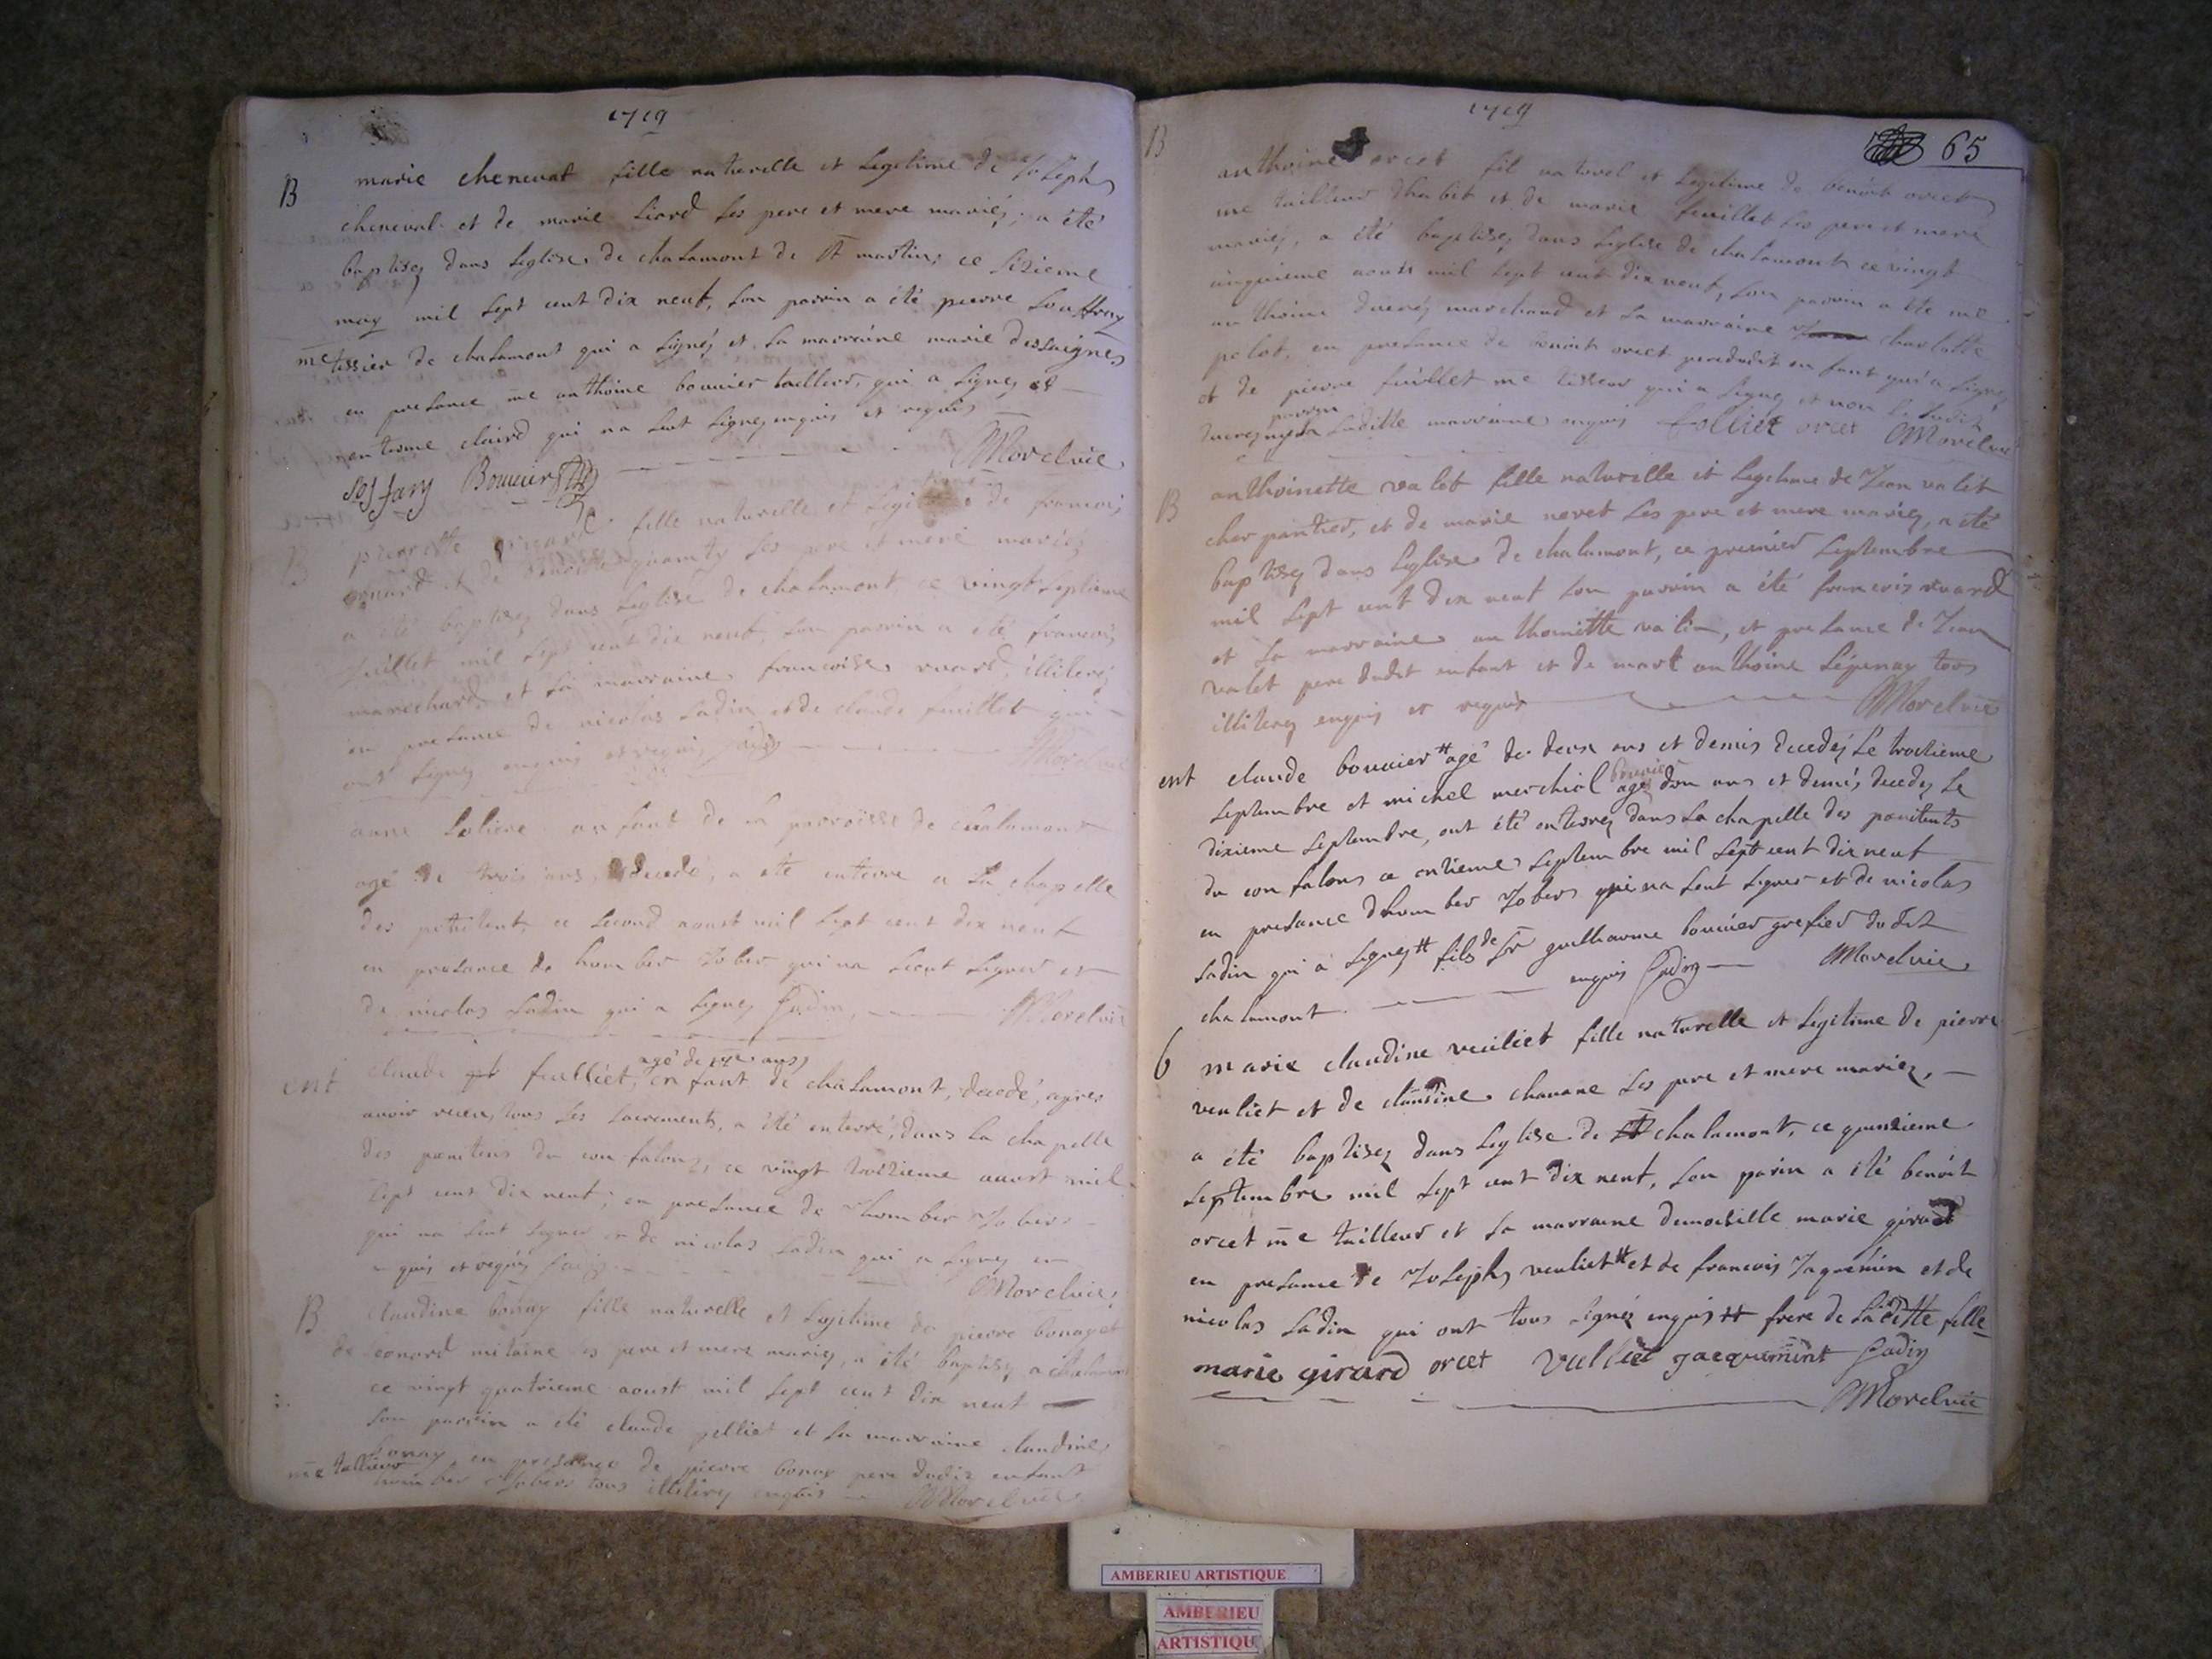 1719
B marie cheneval fille naturelle et Legitime de Joseph
cheneval et de marie Liard ses pere et mere mariés, a été
baptisez dans Leglise de chalamont de St martin, ce sizieme
may mil sept cent dix neuf, son parrin a été pierre Souffray
me tissier de chalamont qui a signéz et la marraine marie dessaignes
en presance me anthoine bouuier tailleur, qui a signez et
claird qui na seut signez enquis et requis
sosfary Bouuier Morelvie
B pierrette fille naturelle et Legitime de francois
et de ses pere et mere mariéz
a été baptisez dans Leglise de chalamont ce vingt septieme
Juillet mil sept cent dix neuf, son parrin a été francois
marechard et sa marraine francoise ruard, illiterés
en presance de nicolas Sadin et de claude feuillet qui
ont signez enquis et requis Sadin Morelvie
anne Loliere enfant de la parroisse de chalamont
agé de trois ans, decedé, a été enterré a la chapelle
des penitent, ce second aoust mil sept cent dix neuf
en presance de homber Jober qui na sceut signer et
de nicolas Sadin qui a signez Sadin Morelvie
agé de ans
ent claude feulliet, enfant de chalamont, decedé, apres
avoir receu tous ses sacrements, a été enterré, dans la chapelle
des penitens du confalons, ce vingt troizieme aoust mil
sept cent dix neuf; en presance de homber Jober
qui na seut signer et de nicolas Sadin qui a signez en
quis et requis Sadin Morelvie
B claudine bonay fille naturelle et Legitime de pierre bonay et
de leonard mitaine ses pere et mere mariez, a été baptisez a chalamon
ce vingt quatrieme aoust mil sept cent dix neuf
son parrin a été claude pelliet et sa marraine claudine
bonay, en presance de pierre bonay pere dudit enfant
me tallieur homber Jober tous illiterez enquis Morelvie
1719
65
B anthoine orcet fil naturel et Legitime de benoit orcet
me tailleur dhabit et de marie feuillet ses pere et mere
mariéz, a été baptisez dans Leglise de chalamont ce vingt
cinquieme aoust mil sept cent dix neuf, son parrin a été me
anthoine ducréz marchand et sa marraine charlotte
pelot, en presance de benoit orcet pere dudit enfant qui a signez
et de pierre feuillet me tisseur qui a signez et non le susdit
parrin
ducrez ny la saditte marraine enquis orcet Morelvie
B anthoinette valet fille naturelle et Legitime de Jean valet
charpantier, et de marie neret ses pere et mere mariez, a été
baptisez dans Leglise de chalamont, ce premier septembre
mil sept cent dix neuf son parrin a été francois ruard
et sa marraine anthoinette valin, et presance de Jean
valet pere dudit enfant et de marc anthoine Lépenay tous
illiterez enquis et requis Morelvie
ent claude bouuier # agé de deux ans et demis decedéz Le troizieme
bouuier
septembre et michel merchiol agé dun ans et demis decedez Le
dixieme septembre, ont été enterrez dans La chapelle des penitents
du confalons ce onzieme septembre mil sept cent dix neuf
en presance dhomber Jober qui na seut signer et de nicolas
Sadin qui a signez # fils de Sr guilhaume bouuier grefier dudit
chalamont enquis Sadin Morelvie
6 marie claudine veuliet fille naturelle et Legitime de pierre
veuliet et de claudine chanane ses pere et mere mariez,
a été baptisez dans Leglise de chalamont, ce quinzieme
septembre mil sept cent dix neuf, son parin a été benoit
orcet me tailleur et sa marraine demoiselle marie girard
en presance de Joseph veuliet # et de francois Jaquemin et de
nicolas Sadin qui ont tous signéz enquis # frere de laditte fille
marie girard orcet Vulliet jacquemint Sadin
Morelvie
AMBERIEU ARTISTIQUE
AMBERIEU
ARTISTIQU